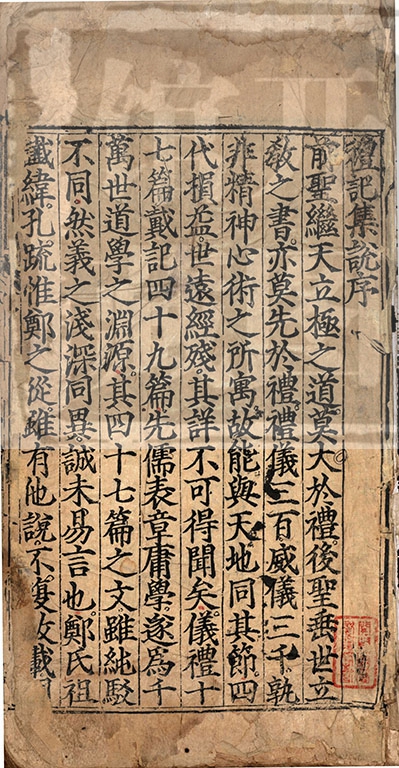 禮記集說序
前聖繼天立極之道莫大於禮後聖垂世立
敎之書亦莫先於禮禮儀三百威儀三千孰
非精神心術之所寓故能與天地同其節四
代損益世遠經殘其詳不可得聞矣儀禮十
七篇戴記四十九篇先儒表章庸學遂爲千
萬世道學之淵源其四十七篇之文雖純駁
不同然義之淺深同異誠未易言也鄭氏祖
讖緯孔疏惟鄭之從雖有他說不復收載